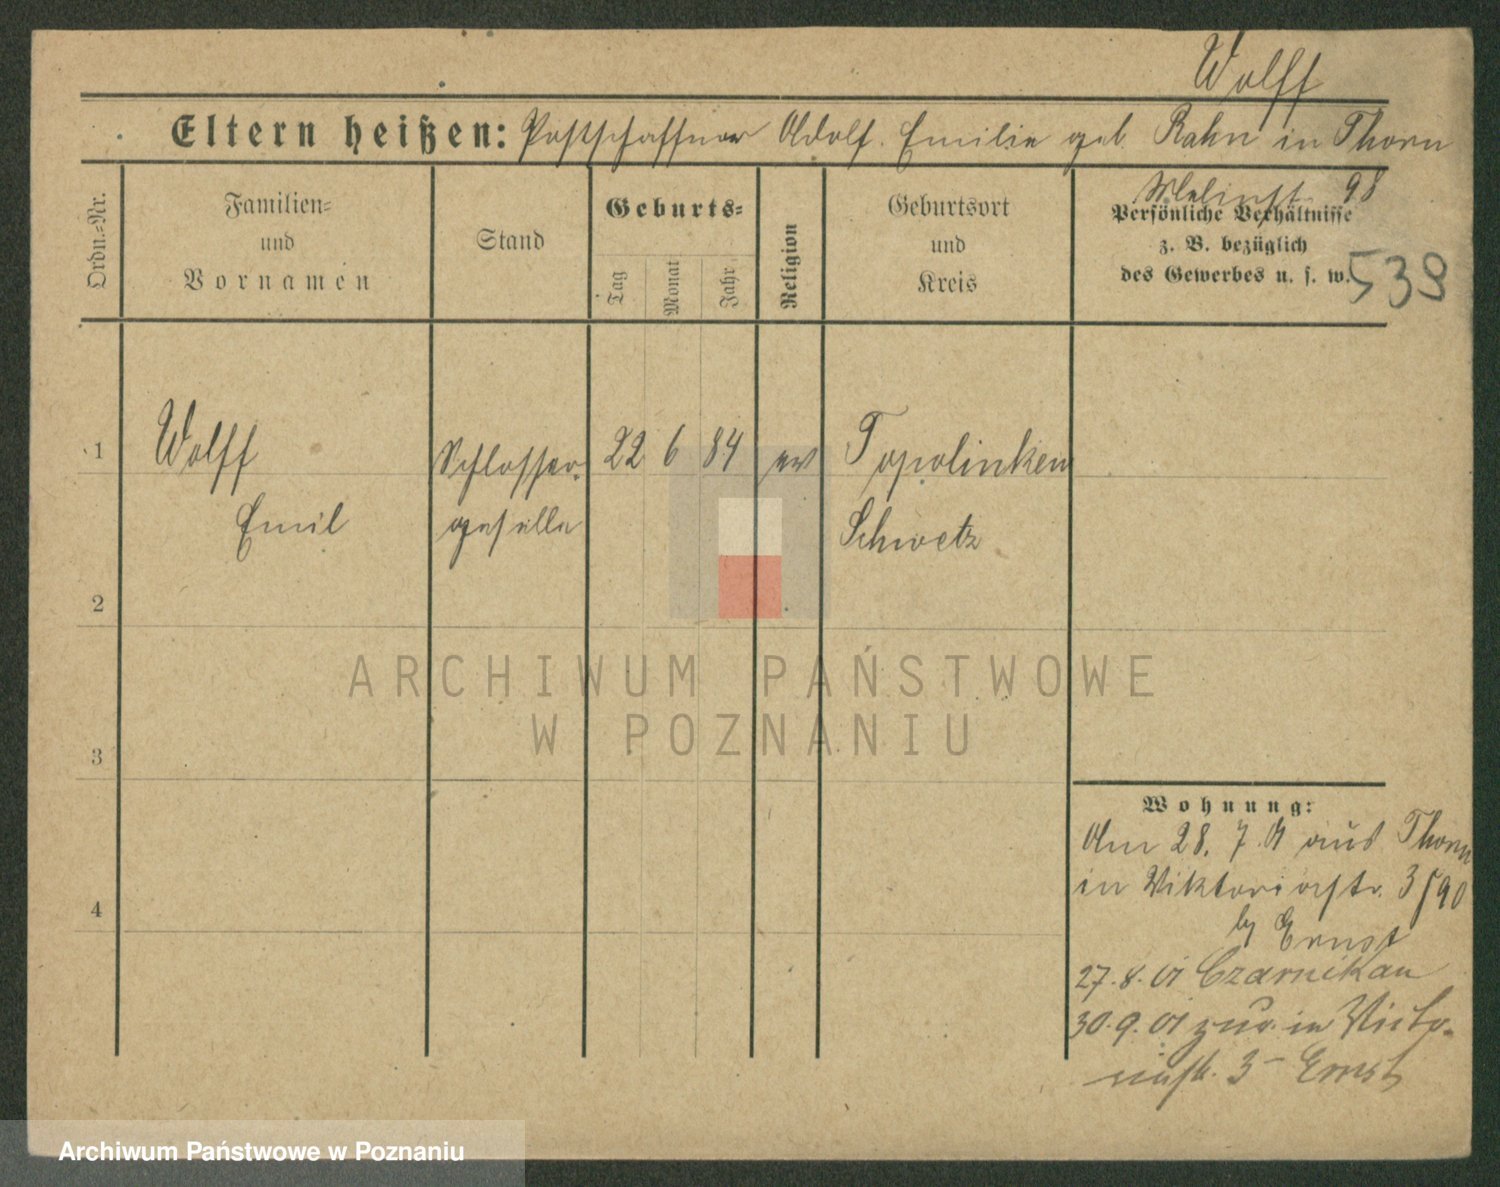 Wolff
Eltern heißen: Postschaffner Adolf. Emilie geb. Rahn in Thorn
98
Ordn.-Nr.
Familien-
und
Vornamen
Stand
Geburts-
Tag
Monat
Jahr
Religion
Geburtsort
und
Kreis
Persönliche Verhältnisse
z. B. bezüglich
des Gewerbes u. s. w.
539
1
Wolff
Emil
Schlosser-
geselle
22
6
84
ev
Topolinken
Schwetz
2
3
4
ARCHIWUM PAŃSTWOWE
W POZNANIU
Wohnung:
Am 28. 7. 01 aus Thorn
in Viktoriastr. 3/90
by Ernst
27. 8. 01 Czarnikau
30. 9. 01 zur. in Victo-
riastr. 3 - Ernst
Archiwum Państwowe w Poznaniu